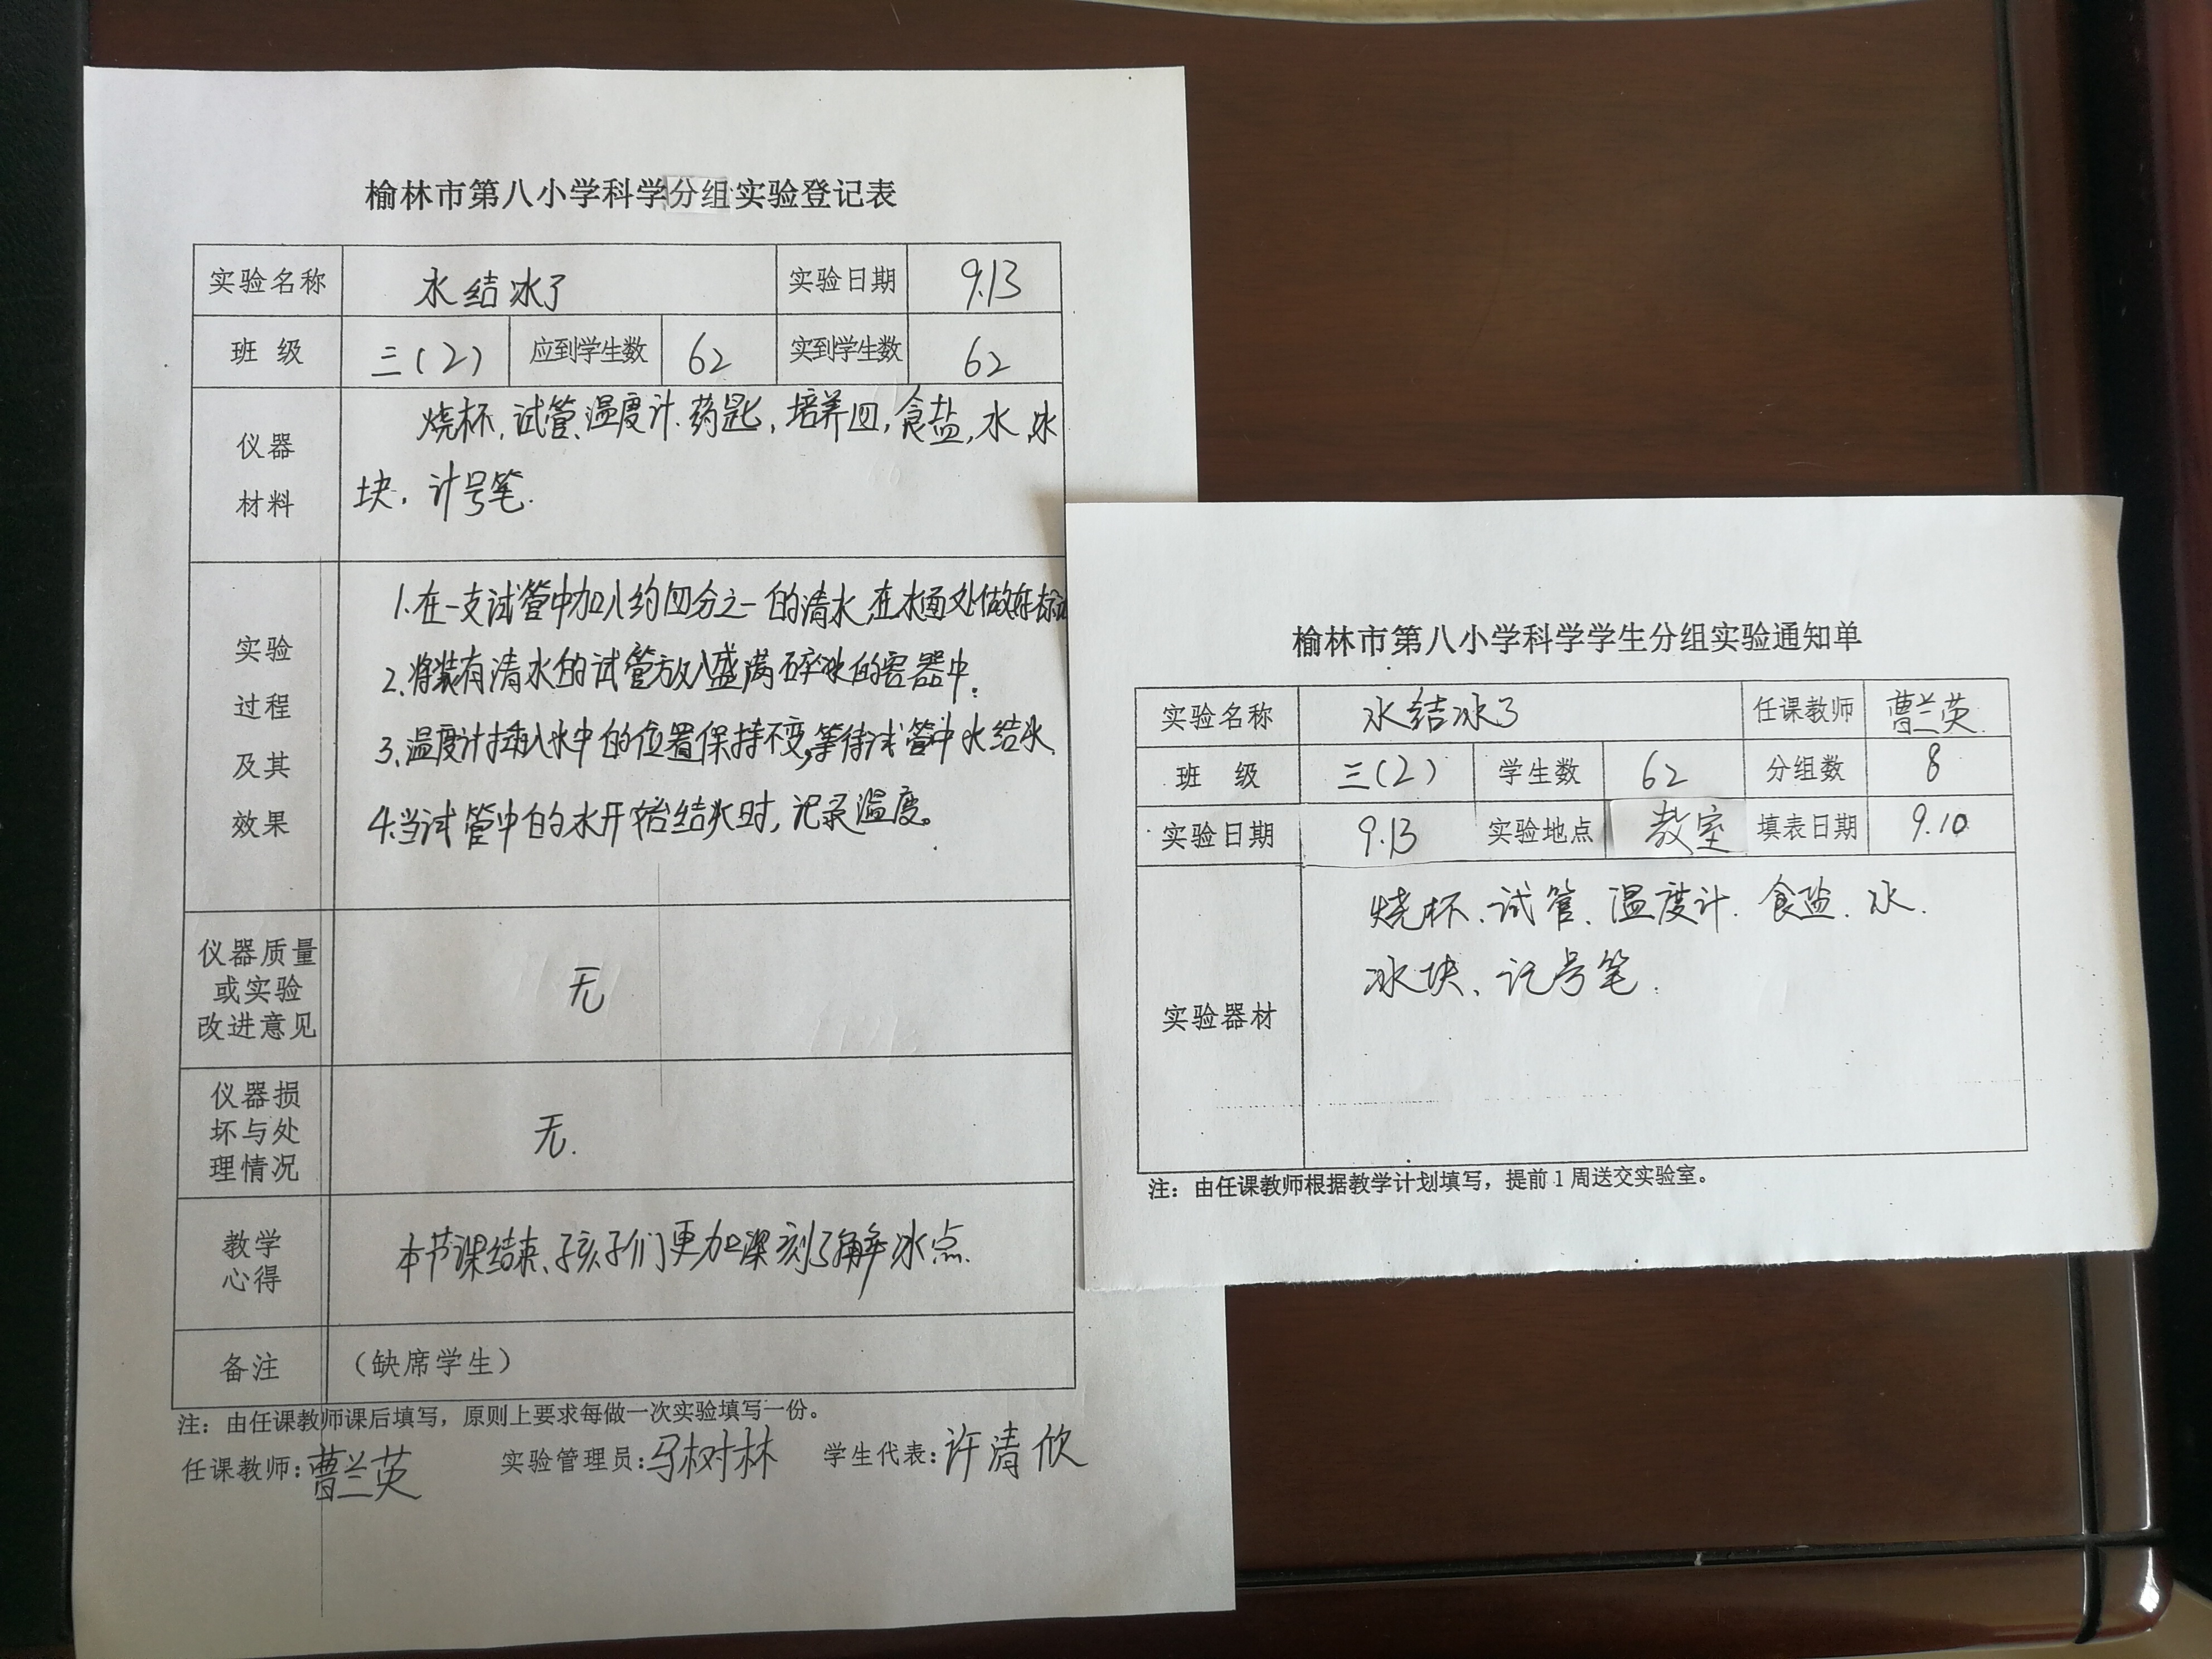 榆林市第八小学科学分组实验登记表
实验名称 水结冰了 实验日期 9.13
班 级 三(2) 应到学生数 62 实到学生数 62
仪器
材料
烧杯、试管、温度计、药匙、培养皿、食盐、水、冰
块、计号笔.
实验
过程
及其
效果
1.在一支试管中加入约四分之一的清水,在水面处做好标记
2.将装有清水的试管放入盛满碎冰的容器中。
3.温度计插入水中的位置保持不变,等待试管中水结冰.
4.当试管中的水开始结冰时,记录温度。
仪器质量
或实验
改进意见
无
仪器损
坏与处
理情况
无.
教学
心得
本节课结束、孩子们更加深刻了解冰点.
备注 (缺席学生)
注:由任课教师课后填写,原则上要求每做一次实验填写一份。
任课教师:曹兰英 实验管理员:马树林 学生代表:许清欣
榆林市第八小学科学学生分组实验通知单
实验名称 水结冰了 任课教师 曹兰英.
班 级 三(2) 学生数 62 分组数 8
实验日期 9.13 实验地点 教室 填表日期 9.10
实验器材
烧杯、试管、温度计、食盐、水.
冰块、记号笔.
注:由任课教师根据教学计划填写,提前1周送交实验室。